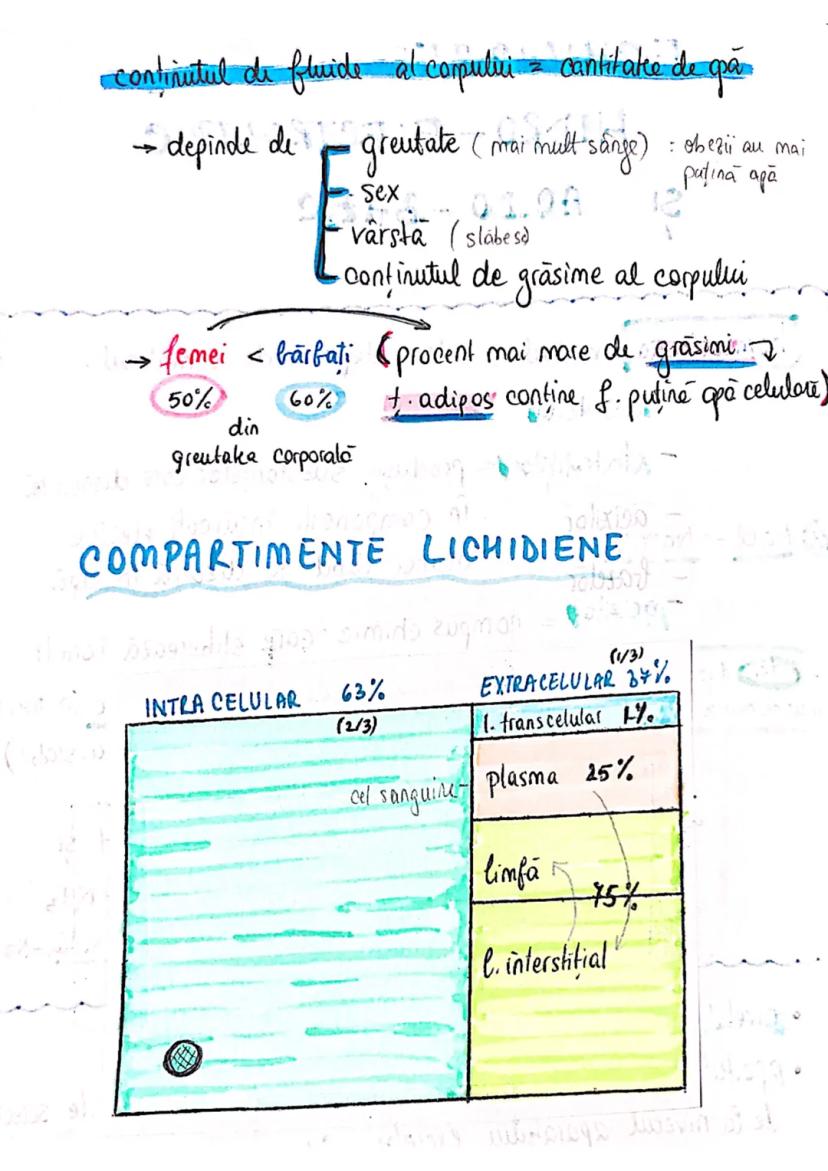 conținutul de fluide al corpului = cantitate de apă
→ depinde de greutate (mai mult sânge) : obezii au mai puțină apă
sex
vârstă (slăbesc)
conținutul de grăsime al corpului
→ femei < bărbați (procent mai mare de grăsimi →
50% 60% ț. adipos conține f. puțină apă celulare)
din
greutatea corporală
COMPARTIMENTE LICHIDIENE
(1/3)
INTRACELULAR 63% EXTRACELULAR 37%
(2/3) l. transcelular 1%
plasma 25%
cel sanguine
limfă
75%
l. interstițial